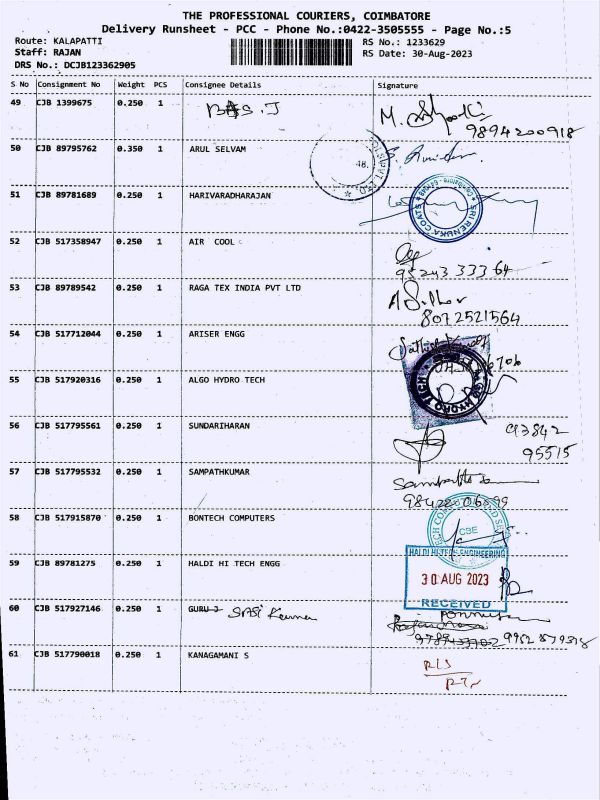 THE PROFESSIONAL COURIERS, COIMBATORE
Delivery Runsheet - PCC - Phone No.:0422-3505555 - Page No.:5
Route: KALAPATTI
RS No.: 1233629
Staff: RAJAN
RS Date: 30-Aug-2023
DRS No.: DCJB123362905
S No Consignment No Weight PCS Consignee Details Signature
49 CJB 1399675 0.250 1
9894200918
50 CJB 89795762 0.350 1 ARUL SELVAM
51 CJB 89781689 0.250 1 HARIVARADHARAJAN
SRI RENUKA COATS
52 CJB 517358947 0.250 1 AIR COOL
95243 333 64
53 CJB 89789542 0.250 1 RAGA TEX INDIA PVT LTD
8072521564
54 CJB 517712044 0.250 1 ARISER ENGG
55 CJB 517920316 0.250 1 ALGO HYDRO TECH
HYDRO TECH
56 CJB 517795561 0.250 1 SUNDARIHARAN
93842
95515
57 CJB 517795532 0.250 1 SAMPATHKUMAR
58 CJB 517915870 0.250 1 BONTECH COMPUTERS
CBE
59 CJB 89781275 0.250 1 HALDI HI TECH ENGG
HALDI HI-TECH ENGINEERING
30 AUG 2023
RECEIVED
60 CJB 517927146 0.250 1 GURU J Sasi Kumar
61 CJB 517790018 0.250 1 KANAGAMANI S